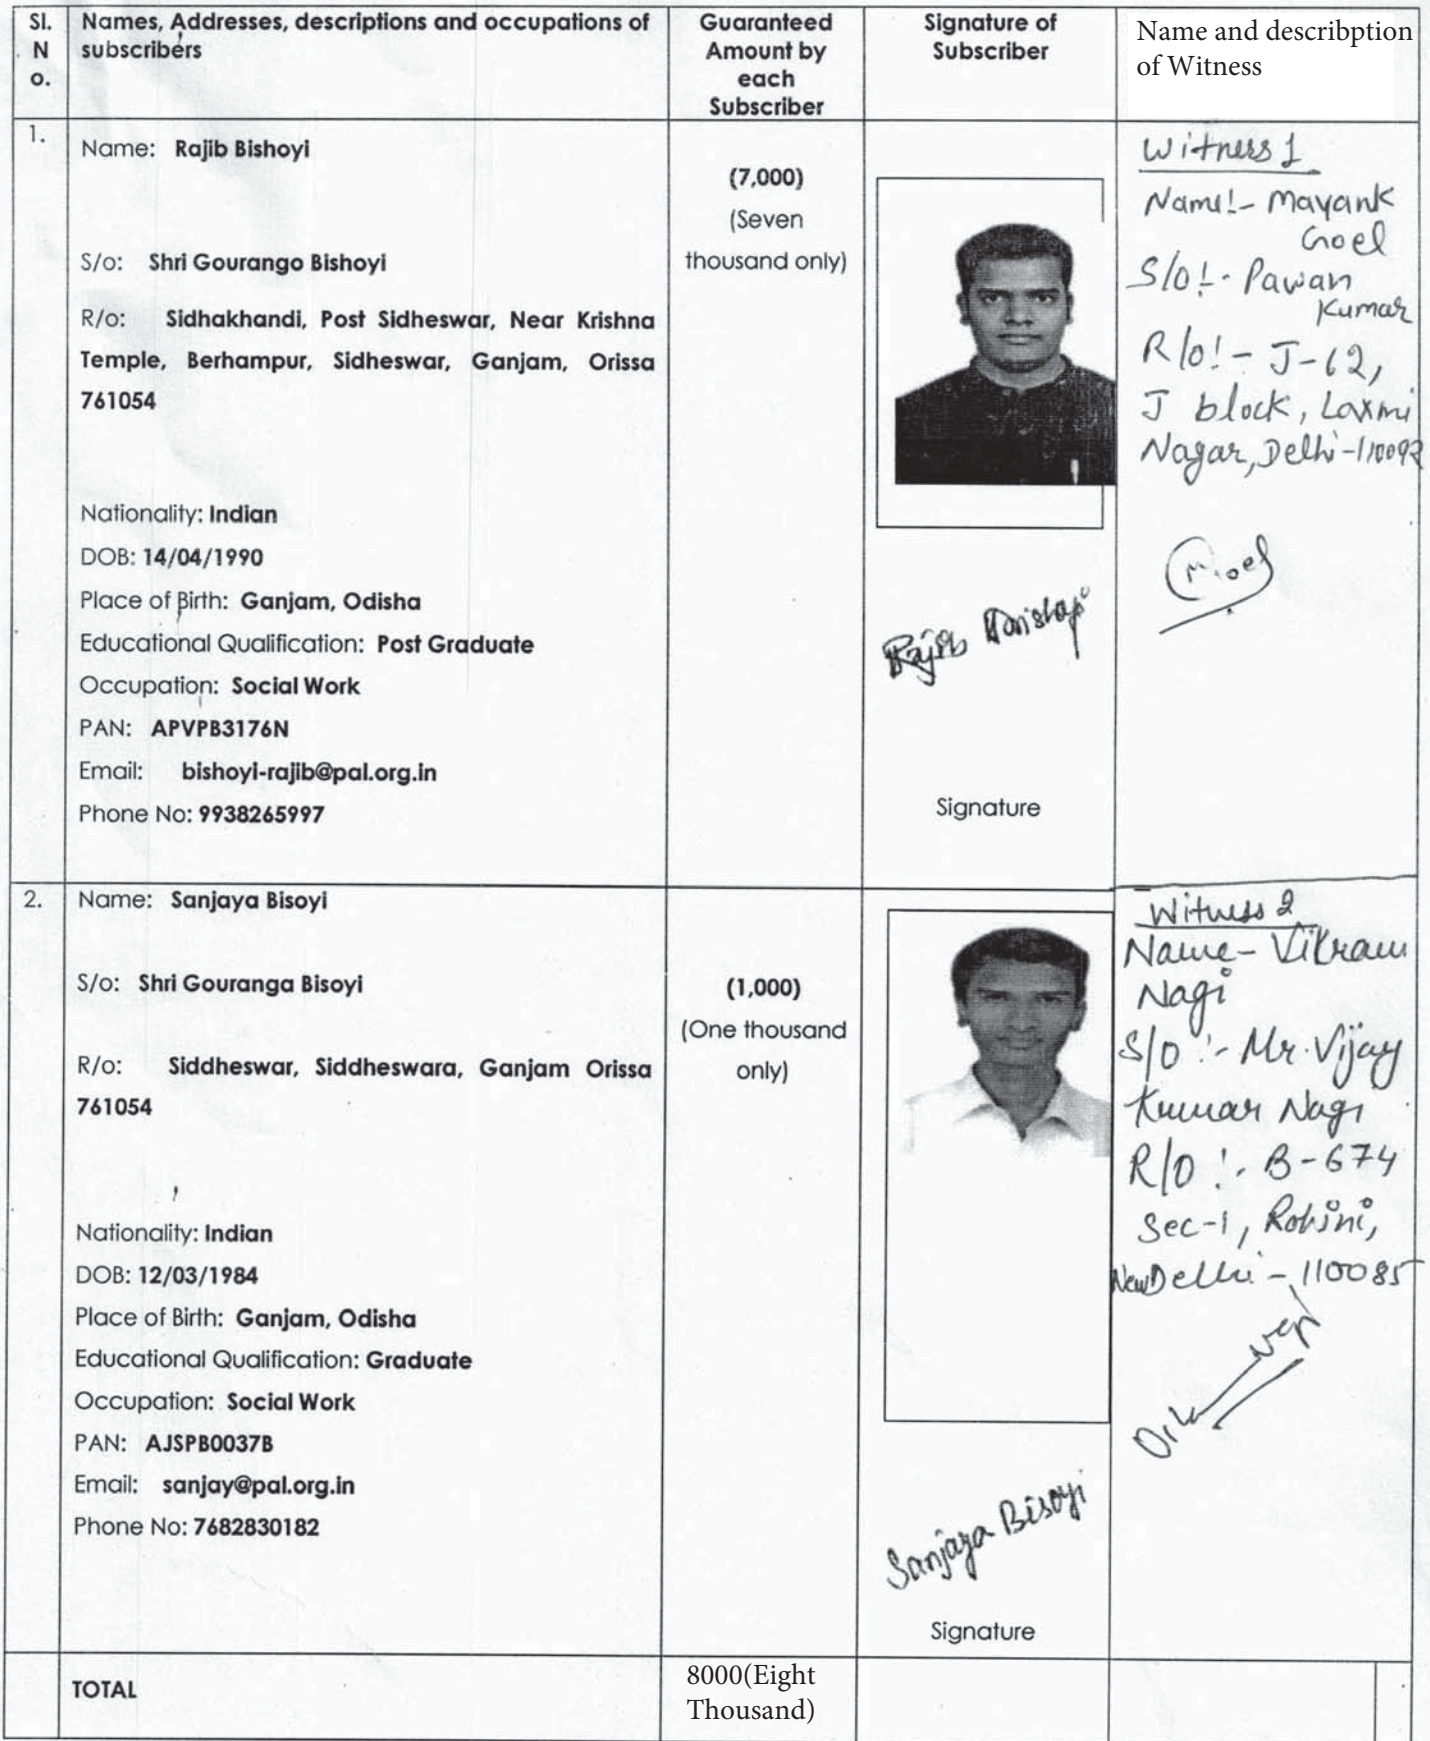 Sl. N o.
Names, Addresses, descriptions and occupations of
subscribers
Guaranteed
Amount by
each
Subscriber
Signature of
Subscriber
Name and describption
of Witness
1.
Name: Rajib Bishoyi
S/o: Shri Gourango Bishoyi
R/o: Sidhakhandi, Post Sidheswar, Near Krishna
Temple, Berhampur, Sidheswar, Ganjam, Orissa
761054
Nationality: Indian
DOB: 14/04/1990
Place of Birth: Ganjam, Odisha
Educational Qualification: Post Graduate
Occupation: Social Work
PAN: APVPB3176N
Email: bishoyi-rajib@pal.org.in
Phone No: 9938265997
(7,000)
(Seven
thousand only)
Rajib Bishoyi
Signature
Witness 1
Name:- Mayank
Goel
S/o:- Pawan
Kumar
R/o:- J-62,
J block, Laxmi
Nagar, Delhi-110092
M.Goel
2.
Name: Sanjaya Bisoyi
S/o: Shri Gouranga Bisoyi
R/o: Siddheswar, Siddheswara, Ganjam Orissa
761054
Nationality: Indian
DOB: 12/03/1984
Place of Birth: Ganjam, Odisha
Educational Qualification: Graduate
Occupation: Social Work
PAN: AJSPB0037B
Email: sanjay@pal.org.in
Phone No: 7682830182
(1,000)
(One thousand
only)
Sanjaya Bisoyi
Signature
Witness 2
Name- Vikram
Nagi
S/o:- Mr. Vijay
Kumar Nagi
R/O:- B-674
Sec-1, Rohini,
New Delhi - 110085
TOTAL
8000(Eight
Thousand)